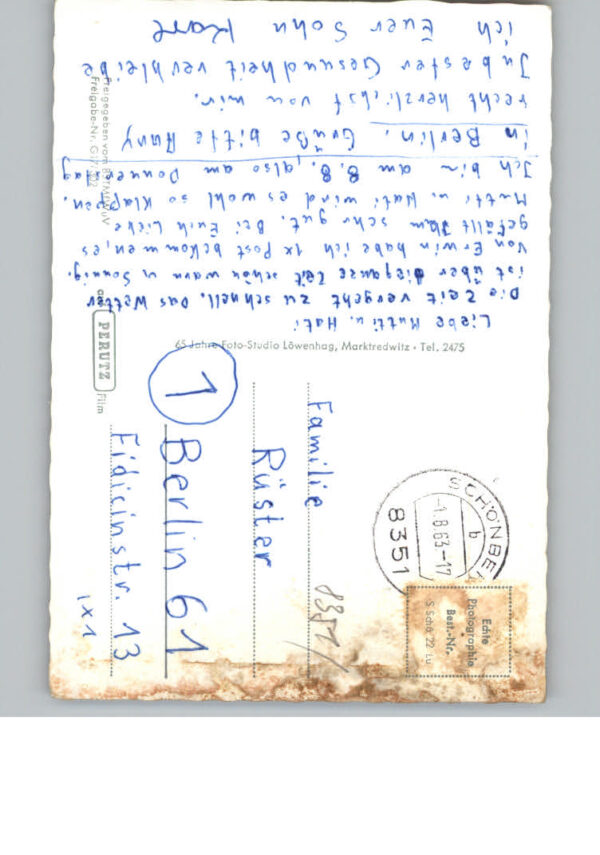 Liebe Mutti u. Hati
Die Zeit vergeht zu schnell. Das Wetter
ist über die ganze Zeit schön warm u. sonnig.
Von Erwin habe ich 1x Post bekommen, es
gefällt ihm sehr gut. Bei Euch Liebe
Mutti u. Hati wird es wohl so klappen.
Ich bin am 8.8., also am Donnerstag
in Berlin. Grüße bitte
recht herzlichst von mir.
In bester Gesundheit verbleibe
ich Euer Sohn Karl
65 Jahre Foto-Studio Löwenhag, Marktredwitz • Tel. 2475
Freigegeben vom
Freigabe-Nr.
PERUTZ
Film
Familie
Rüster
1 Berlin 61
Fidicinstr. 13
8351
SCHÖNBE
b
-1.8.63-17
8351
Echte
Photographie
Best.-Nr.
S Schö 22 Lu